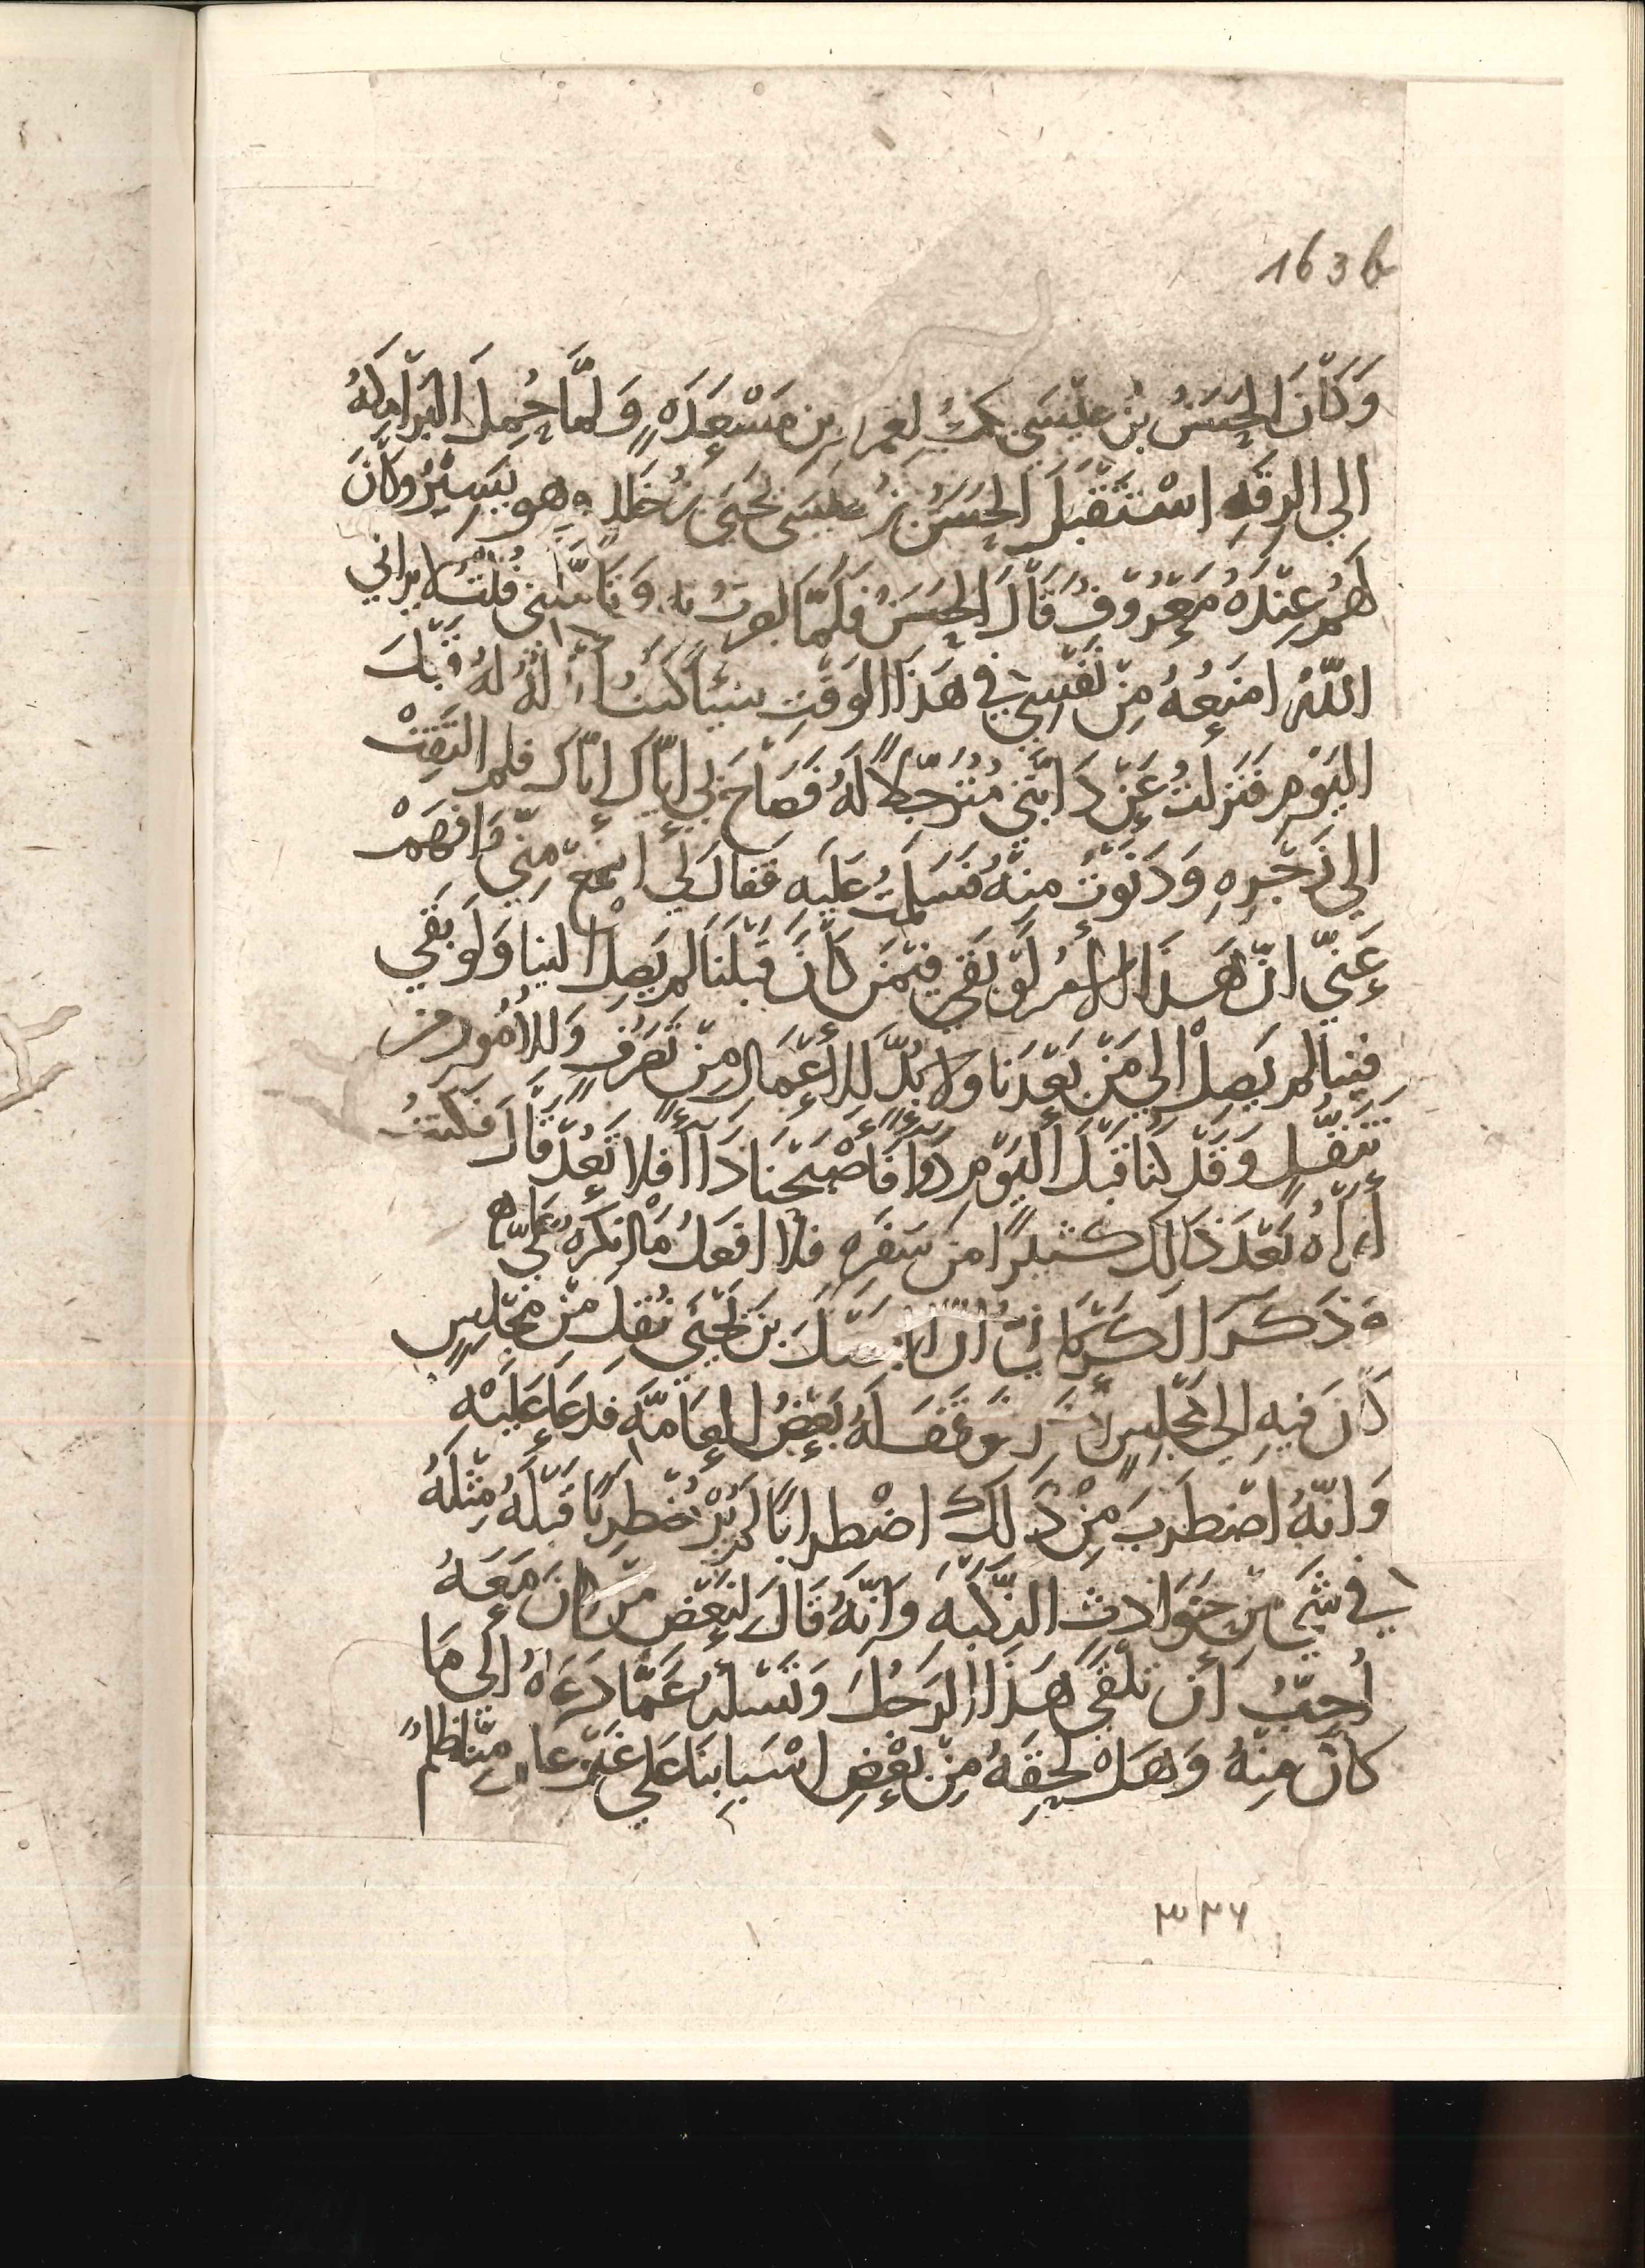 163b
وَكَانَ الْحَسَنُ بْنُ عِيسَى يكتبُ لعمر بن مَسْعَدَهٍ وَلَمَّا حُمِلَ الْبَرَامِكَهُ
الى الرقَهِ اسْتَقْبَلَ الْحَسَنُ بْنُ عِيسَى يحْيَى بْنَ خَالِدٍ وهو يَسِيرُ وَكَانَ
لَهُمْ عِنْدَهُ مَعْرُوفٌ قَالَ الْحَسَنُ فَلَمَّا بصرتُ به وَتَأمَّلَنِي قُلْتُ لا يراني
اللّهُ امنَعُهُ مِنْ نَفْسِي في هَذَا الوَقْتِ شيئًا كنتُ أبْذلُهُ لهُ قَبْلَ
اليَوْمِ فَنَزلتُ عَنْ دَابَّتِي مُتَرَجِّلًا لَهُ فَصَاحَ بِي إيّاكَ إيّاكَ فلم التَفِتْ
الى زَجْرِهِ وَدَنَوْتُ مِنْهُ فَسَلمْتُ عَلَيهِ فَقَالَ لِي اسْمَعْ مِنّي وَافْهَمْ
عَنّي انّ هَذَا الأمر لَوْ بَقيَ فيمَنْ كَانَ قَبْلَنَا لم يَصِلْ الينا وَلَو بَقيَ
فِينَا لم يَصِلْ الى مَنْ بَعْدَنَا ولا بُدَّ للأعْمَالِ مِنْ تَصَرُّفٍ وَللأُمُورِ من
تَنَقُّلٍ وَقَدْ كنا قَبْلَ اليَوْمِ دَوَاءً فَأصْبَحْنَا دَاءً فلا تَعُدْ قَالَ فَكنتُ
أرَاهُ بَعْدَ ذَالِك كثيرًا من سَفَرِهِ فلا افْعَلُ مَا انكَرَهُ عَلَيّ ه
وَذَكَرَ الكَرْمَانيّ انّ الفَضْلَ بْنَ يَحْيَى نُقِلَ مِنْ مَجْلِسٍ
كَانَ فيهِ الى مَجْلِسٍ آخَرَ فَوَقَفَ لَهُ بَعْضُ العَامَّهِ فَدَعَا عَلَيْهِ
وَانّهُ اضْطَرَبَ مِنْ ذَلِكَ اضْطرابًا لم يُرَ مُضْطَرِبًا قَبْلَهُ مِثْلَهُ
في شَيْءٍ مِنْ حَوَادث النكْبَهِ وَانّهُ قَالَ لبَعْضِ مَنْ كَانَ مَعَهُ
أُحِبُّ أنْ تَلْقَى هَذَا الرَجُلَ وَتَسْأله عَمَّا دَعَاهُ الى مَا
كَانَ مِنْهُ وَهَلْ لَحِقَهُ مِنْ بَعْضِ اسْبَابِنَا عَلَى غَيْرِ عِلْمٍ مِنَّا ظُلْمٌ
٣٢٦